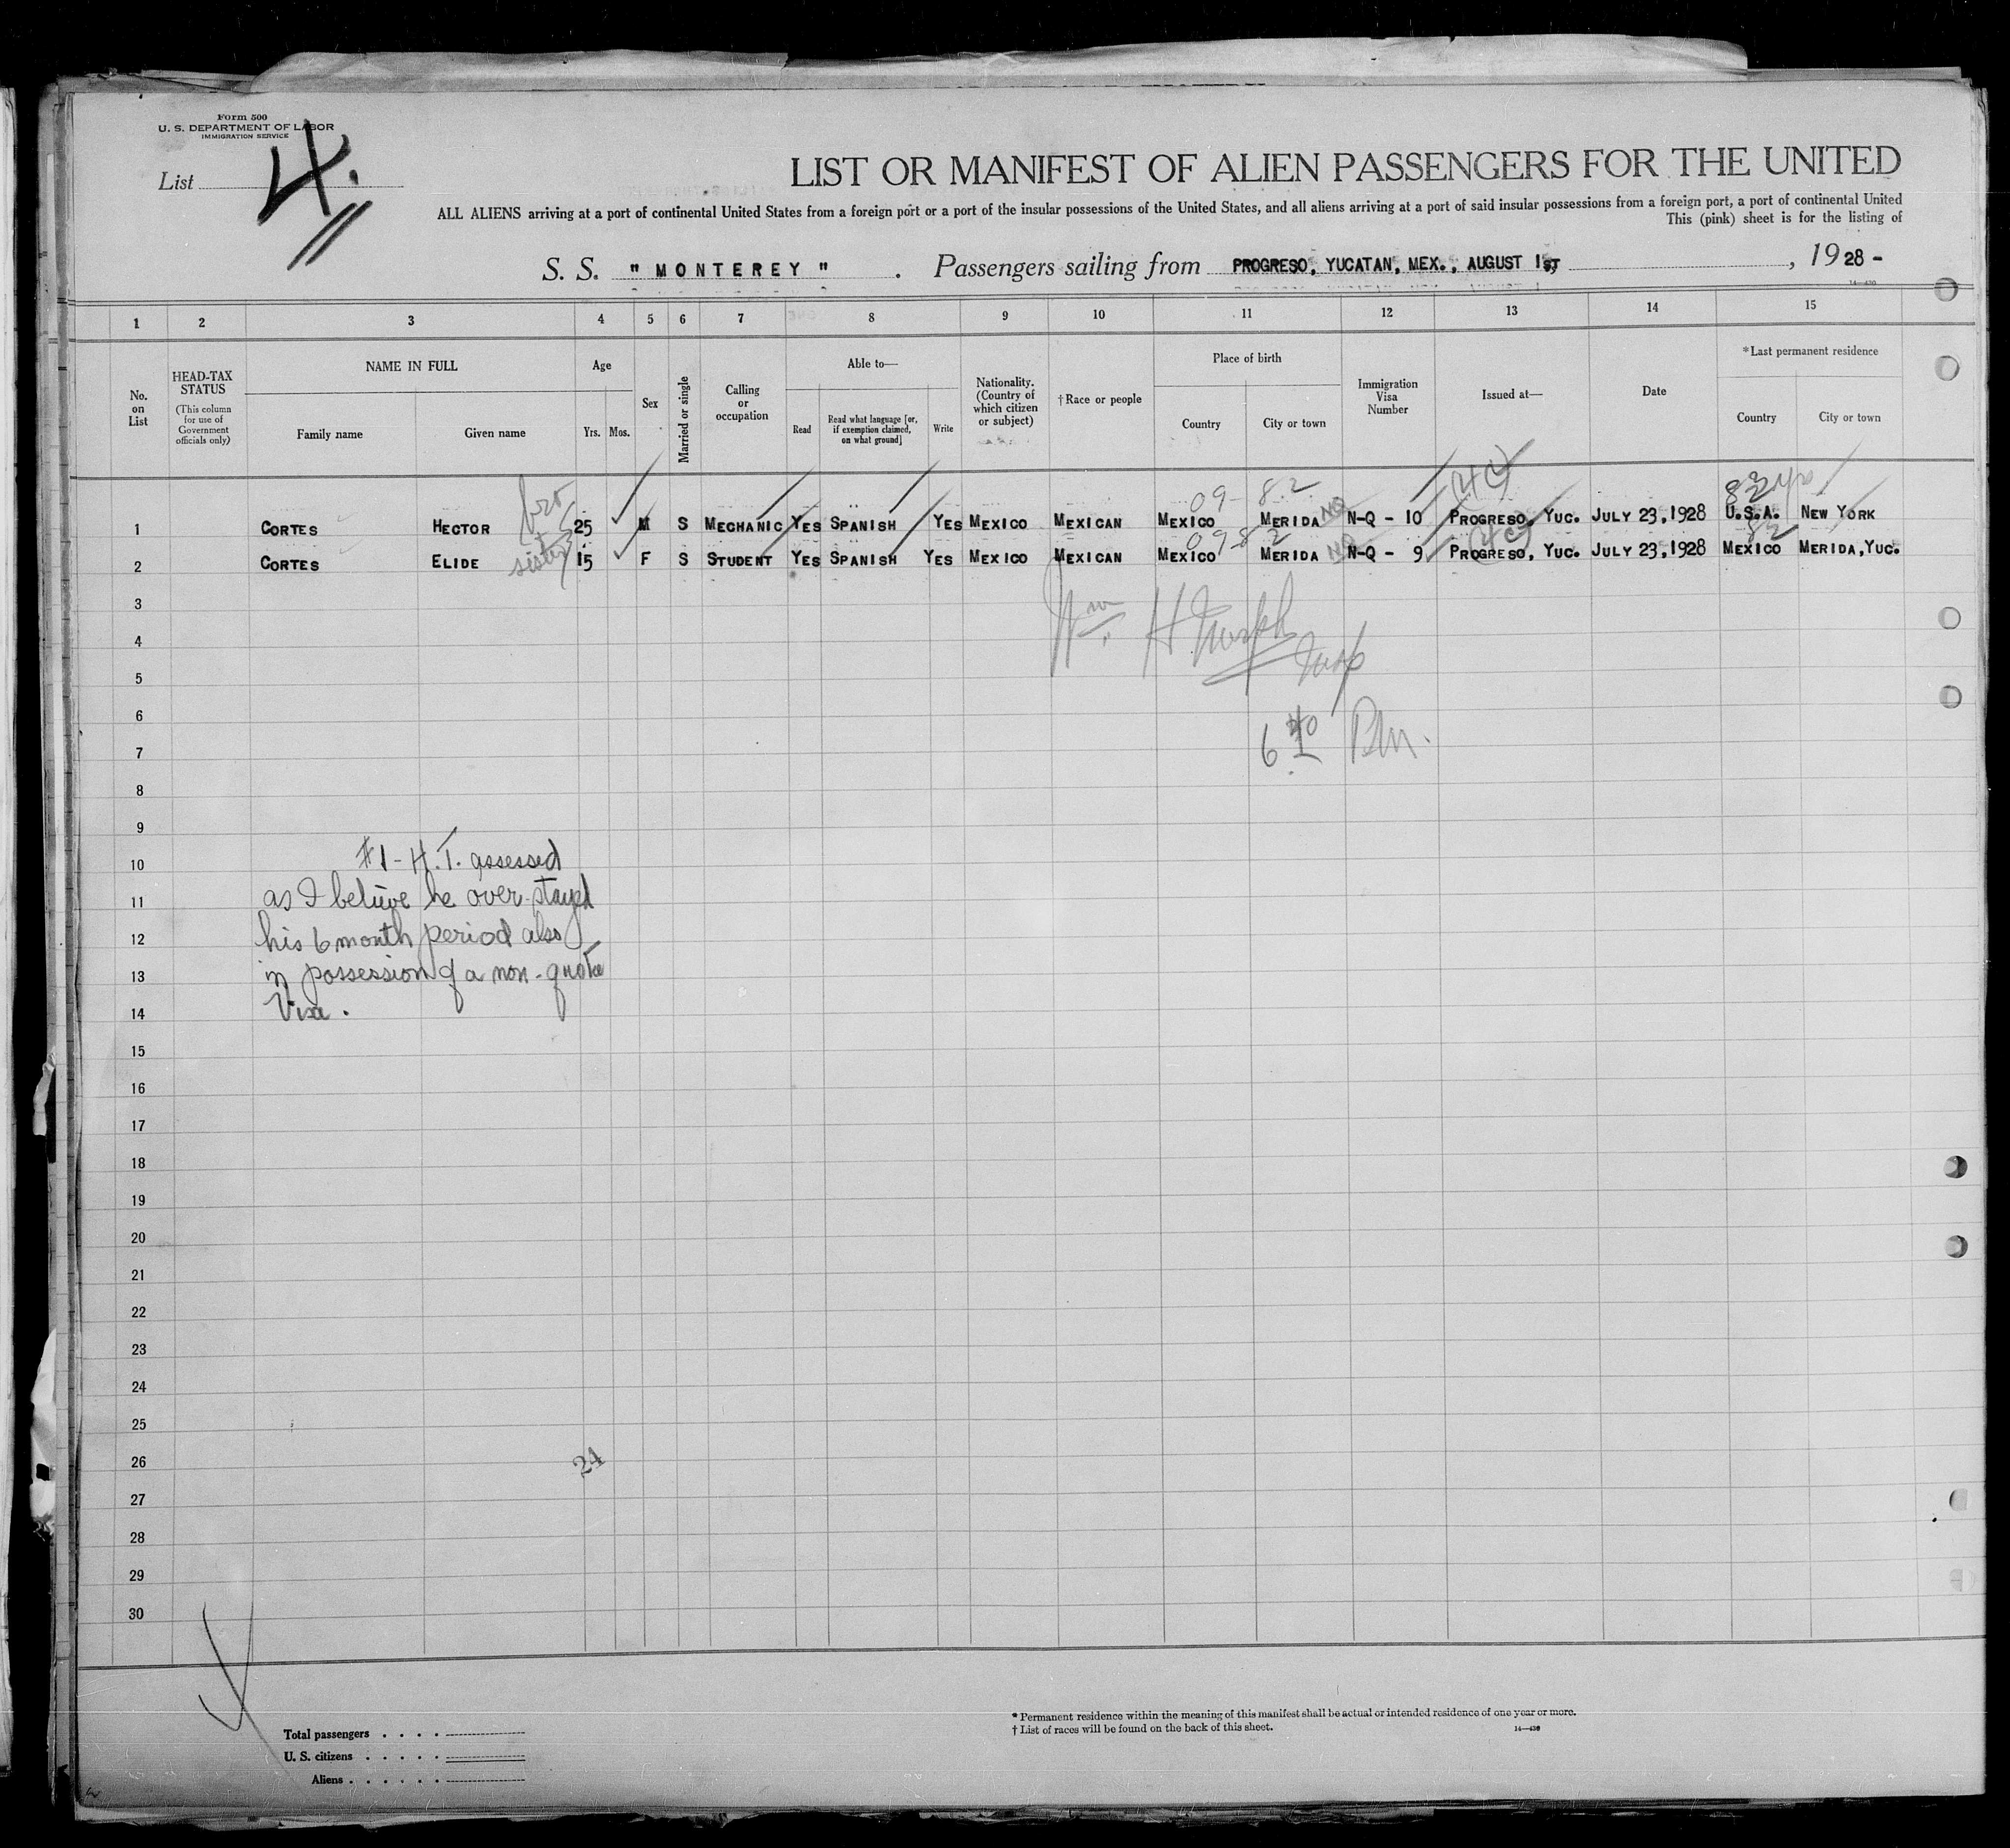 Form 500
U. S. DEPARTMENT OF LABOR
IMMIGRATION SERVICE
List 4.
LIST OR MANIFEST OF ALIEN PASSENGERS FOR THE UNITED
ALL ALIENS arriving at a port of continental United States from a foreign port or a port of the insular possessions of the United States, and all aliens arriving at a port of said insular possessions from a foreign port, a port of continental United
This (pink) sheet is for the listing of
S. S. "MONTEREY" . Passengers sailing from PROGRESO, YUCATAN, MEX., AUGUST 1ST, 1928-
14—430
1 2 3 4 5 6 7 8 9 10 11 12 13 14 15
No. on List
HEAD-TAX STATUS
(This column for use of Government officials only)
NAME IN FULL
Family name Given name
Age
Yrs. Mos.
Sex
Married or single
Calling or occupation
Able to—
Read
Read what language [or, if exemption claimed, on what ground]
Write
Nationality. (Country of which citizen or subject)
†Race or people
Place of birth
Country City or town
Immigration Visa Number
Issued at—
Date
*Last permanent residence
Country City or town
bro 09- 82
1 CORTES HECTOR 25 M S MECHANIC YES SPANISH YES MEXICO MEXICAN MEXICO MERIDA NQ N-Q - 10 PROGRESO, YUC. JULY 23, 1928 U.S.A. NEW YORK
sister 09-82 82
2 CORTES ELIDE 15 F S STUDENT YES SPANISH YES MEXICO MEXICAN MEXICO MERIDA N-Q - 9 PROGRESO, YUC. JULY 23, 1928 MEXICO MERIDA, YUC.
3
Wm. H
4
5
6
6 40 Pm.
7
8
9
10 #1- H.T. assessed
11 as I believe he over-stayed
12 his 6 month period also
13 in possession of a non-quota
14 Visa.
15
16
17
18
19
20
21
22
23
24
25
26 24
27
28
29
30
Total passengers . . . .
U. S. citizens . . . . .
Aliens . . . . . .
* Permanent residence within the meaning of this manifest shall be actual or intended residence of one year or more.
† List of races will be found on the back of this sheet.
14—430